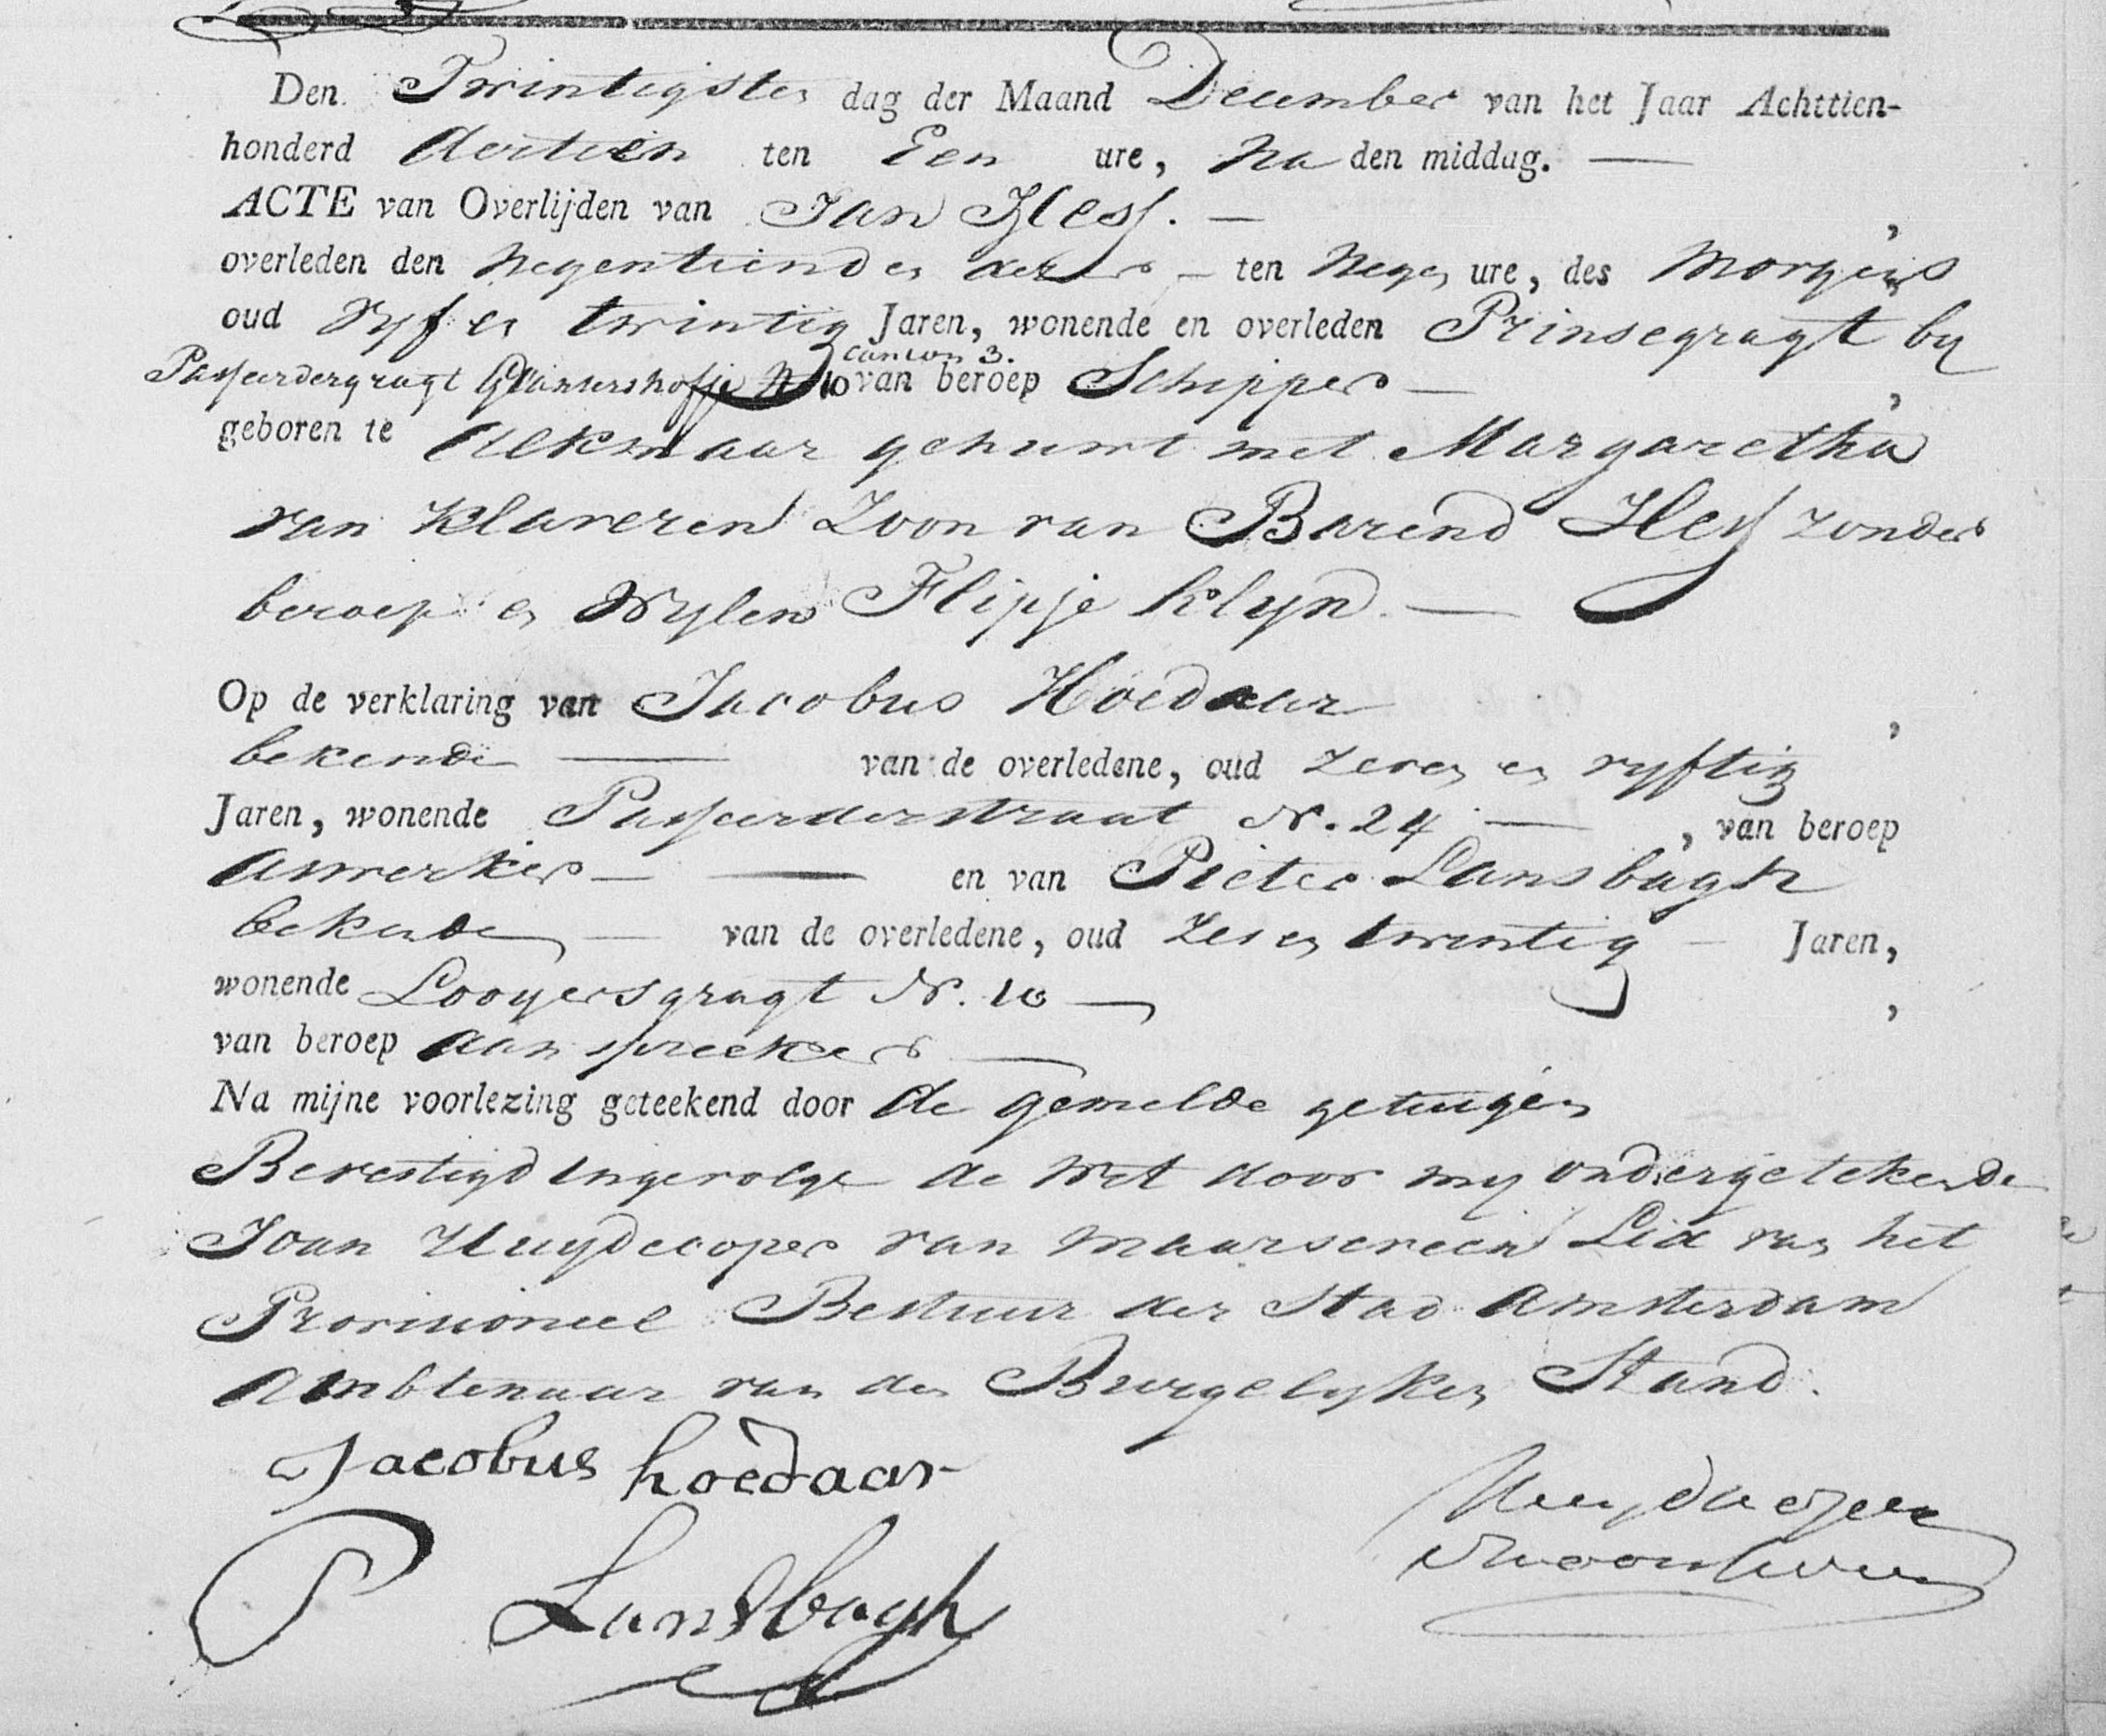 Den Twintigsten dag der Maand December van het Jaar Achttien-
honderd dertien ten Een ure, Na den middag. —
ACTE van Overlijden van Jan Hess. — ,
overleden den Negentienden dezer — ten Negen ure, des Morgens
oud vyf en twintig Jaren, wonende en overleden Prinsegragt by
canton 3.
Passeerdergragt Glansershofje N 10 van beroep Schipper — ,
geboren te Alkmaar gehuwt met Margaretha
van Klaveren Zoon van Barend Hess zonder
beroep en Wylen Flipje Klyn. —
Op de verklaring van Jacobus Hoedaar ,
bekende — van de overledene, oud zeven en vyftig
Jaren, wonende Passeerderstraat N. 24 — , van beroep
Aswerker — — en van Pieter Lansbagh
bekende — van de overledene, oud Zes en twintig — Jaren,
wonende Looyersgragt N. 10 — ,
van beroep aanspreeker —
Na mijne voorlezing geteekend door de gemelde getuigen
Bevestigd ingevolge de Wet door my ondergetekende
Joan Huydecoper van Maarseveen Lid van het
Provisioneel Bestuur der Stad Amsterdam
Ambtenaar van den Burgelyken Stand.
Jacobus hoedaar
P Lansbagh